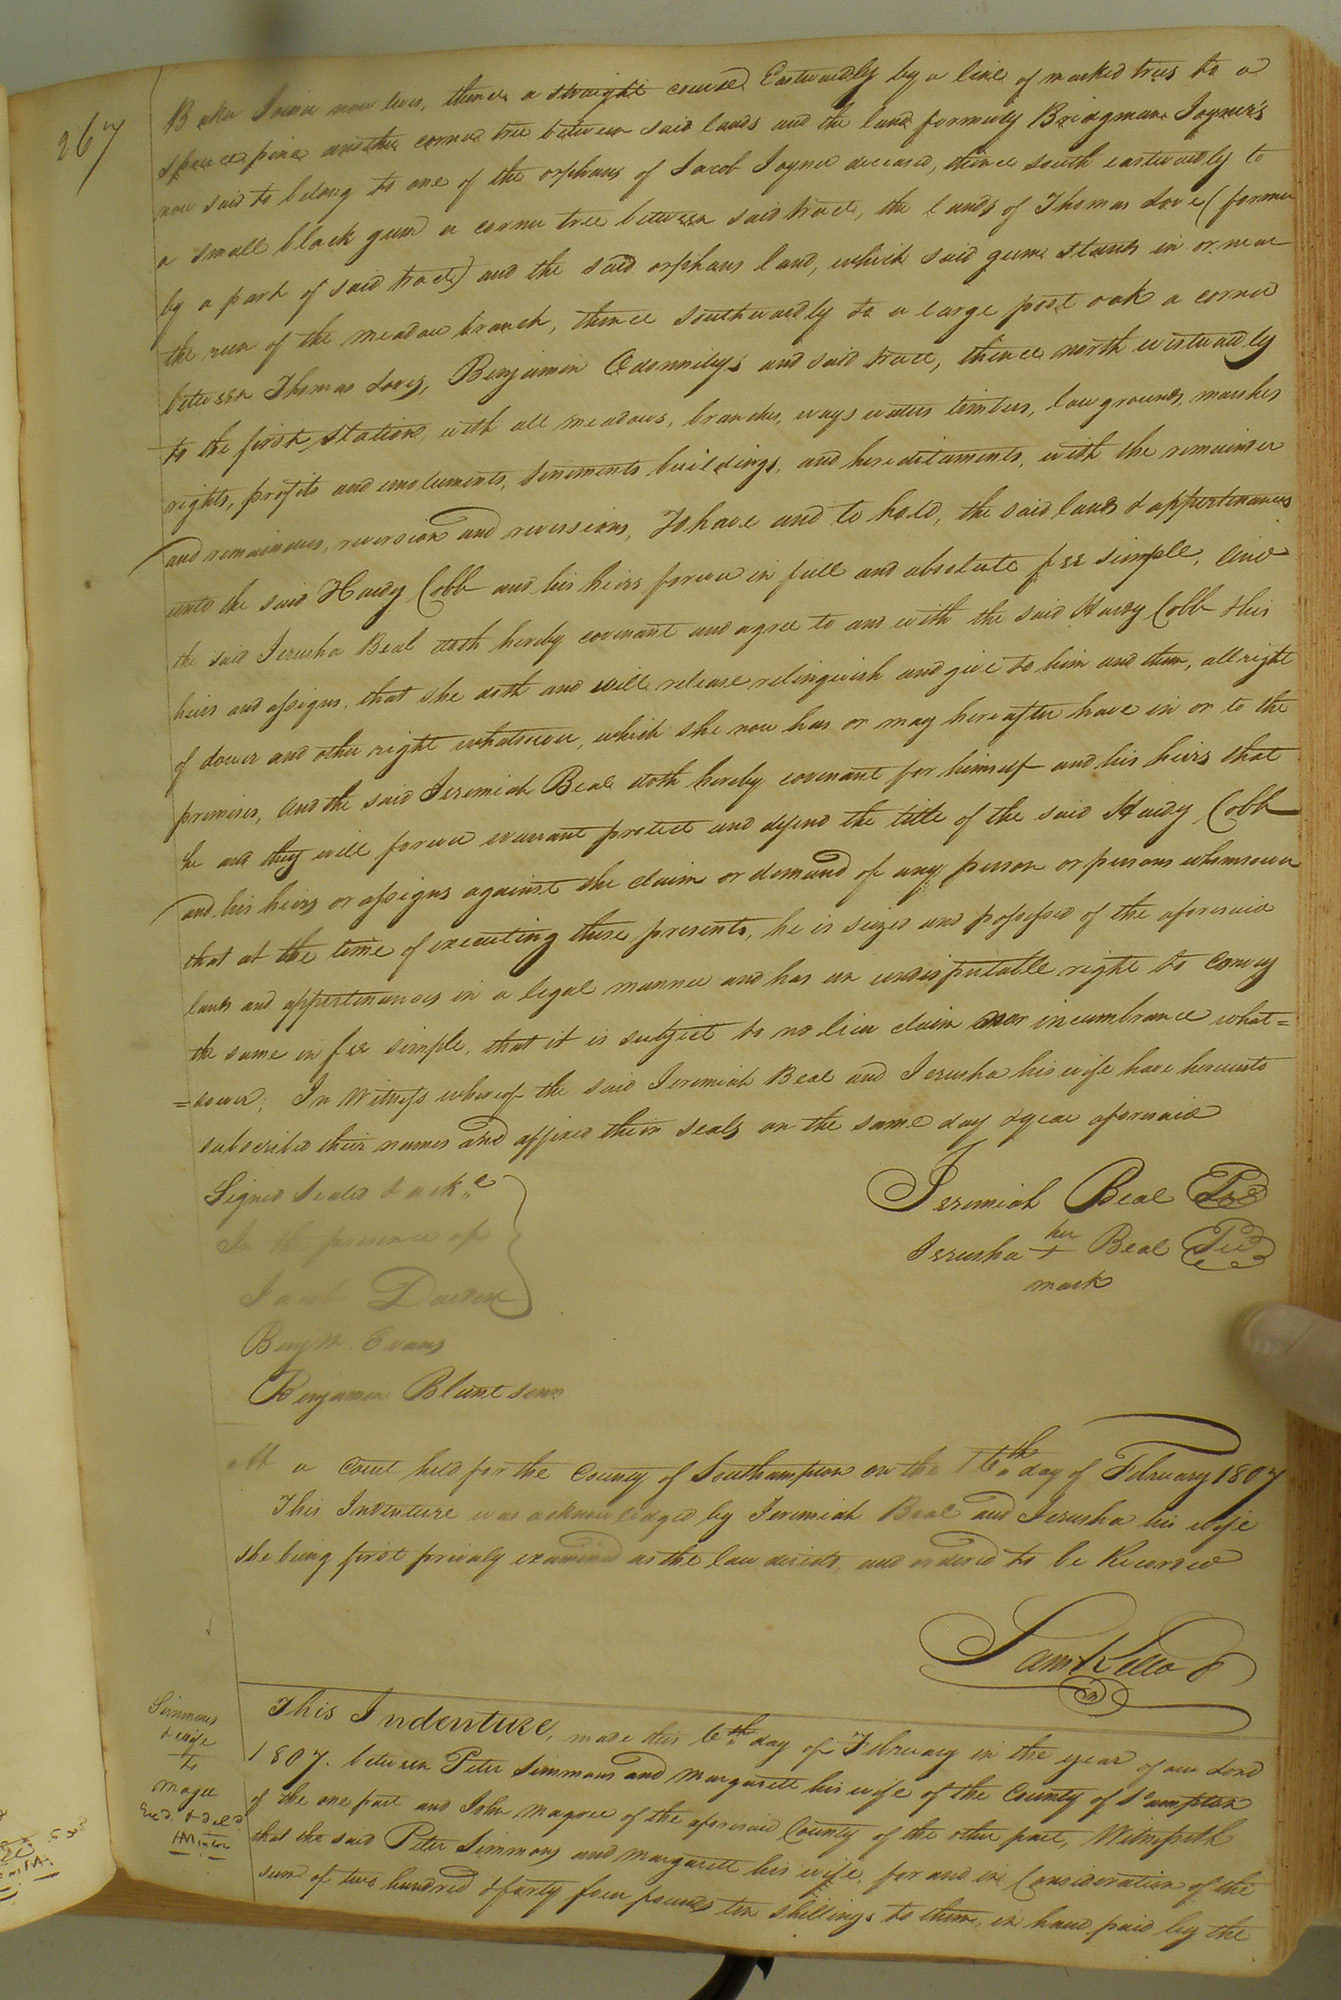 267
Baker Joiner now lives, thence a straight course Eastwardly by a line of marked trees to a
spruce pine another corner tree between said lands and the land formerly Bridgman Joyner's
now said to belong to one of the orphans of Jacob Joyner deceased, thence south eastwardly to
a small black gum a corner tree between said tract, the lands of Thomas Love (former
ly a part of said tract) and the said orphans land, which said gum stands in or near
the run of the meadow branch, thence southwardly to a large post oak a corner
between Thomas Loves, Benjamin and said tract, thence north westwardly
to the first station, with all meadows, branches, ways waters timbers, low grounds, marshes
rights, profits and emoluments, tenements buildings, and hereditaments, with the remainder
and remainders, reversion and reversions, To have and to hold, the said lands & appertenances
unto the said Hardy Cobb and his heirs forever in full and absolute fee simple, And
the said Jerusha Beal doth hereby covenant and agree to and with the said Hardy Cobb & his
heirs and assigns, that she doth and will release relinquish and give to him and them, all right
of dower and other right whatsoever, which she now has or may hereafter have in or to the
premises, And the said Jeremiah Beal doth hereby covenant for himself and his heirs that
he and they will forever warrant protect and defend the title of the said Hardy Cobb
and his heirs or assigns against the claim or demand of any person or persons whomsoever
that at the time of executing these presents, he is seized and possessed of the aforesaid
lands and appertenances in a legal manner and has an undisputable right to convey
the same in fee simple, that it is subject to no lien claim nor incumbrance what=
=soever, In Witness whereof the said Jeremiah Beal and Jerusha his wife have hereunto
subscribed their names and affixed their seals on the same day & year aforesaid
Signed Sealed & ack.d
In the presence of
Jacob Darden
Benj. W. Evans
Benjamin Blunt senr.
Jeremiah Beal
her
Jerusha + Beal
mark
At a Court held for the County of Southampton on the 16th day of February 1807
This Indenture was acknowledged by Jeremiah Beal and Jerusha his wife
she being first privaly examined as the law directs, and ordered to be Recorded
Saml Kello
Simmons
& wife
to
Magee
Exd. & deld
This Indenture, made this 6th day of February in the year of our Lord
1807. between Peter Simmons and Margarett his wife of the County of S'ampton
of the one part and John Magree of the aforesaid County of the other part, Witnesseth
that the said Peter Simmons and Margarett his wife, for and in Consideration of the
sum of two hundred & forty four pounds ten shillings to them, in hand paid by the